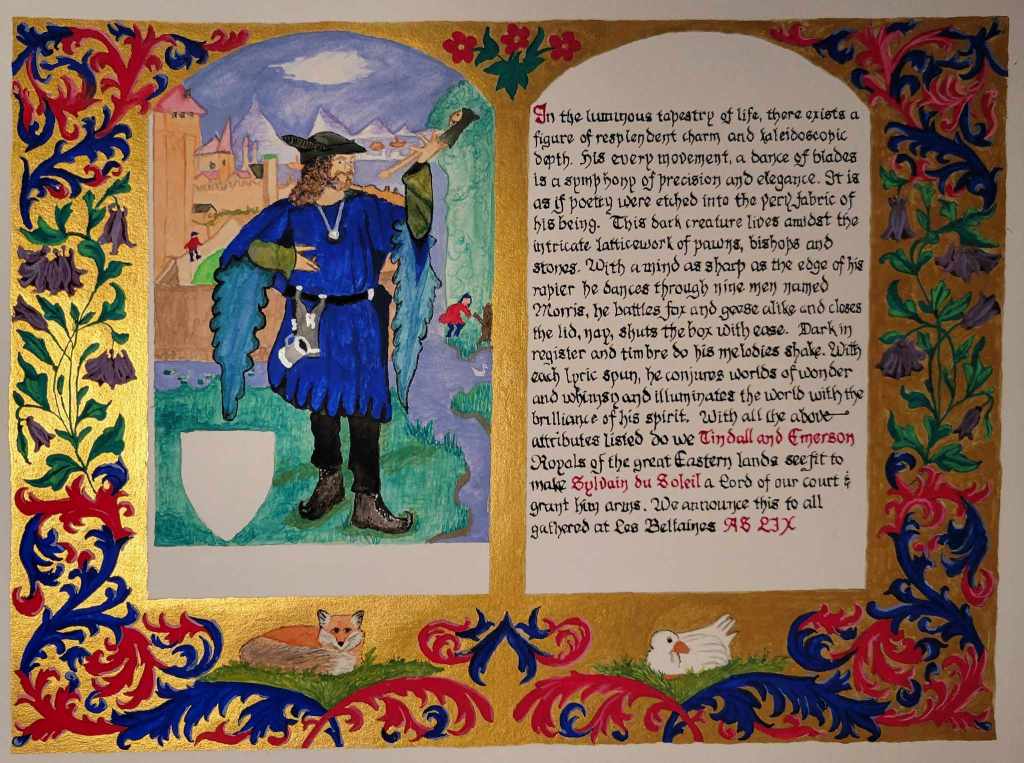 In the luminous tapestry of life, there exists a
figure of resplendent charm and kaleidoscopic
depth. His every movement, a dance of blades
is a symphony of precision and elegance. It is
as if poetry were etched into the very fabric of
his being. This dark creature lives amidst the
intricate latticework of pawns, bishops and
stones. With a mind as sharp as the edge of his
rapier he dances through nine men named
Morris, he battles fox and geese alike and closes
the lid, nay, shuts the box with ease. Dark in
register and timbre do his melodies shake. With
each lyric spun, he conjures worlds of wonder
and whimsy and illuminates the world with the
brilliance of his spirit. With all the above
attributes listed do we Tindall and Emerson
Royals of the great Eastern lands see fit to
make Sylvain du Soleil a Lord of our court &
grant him arms. We announce this to all
gathered at Les Bellaines AS LIX